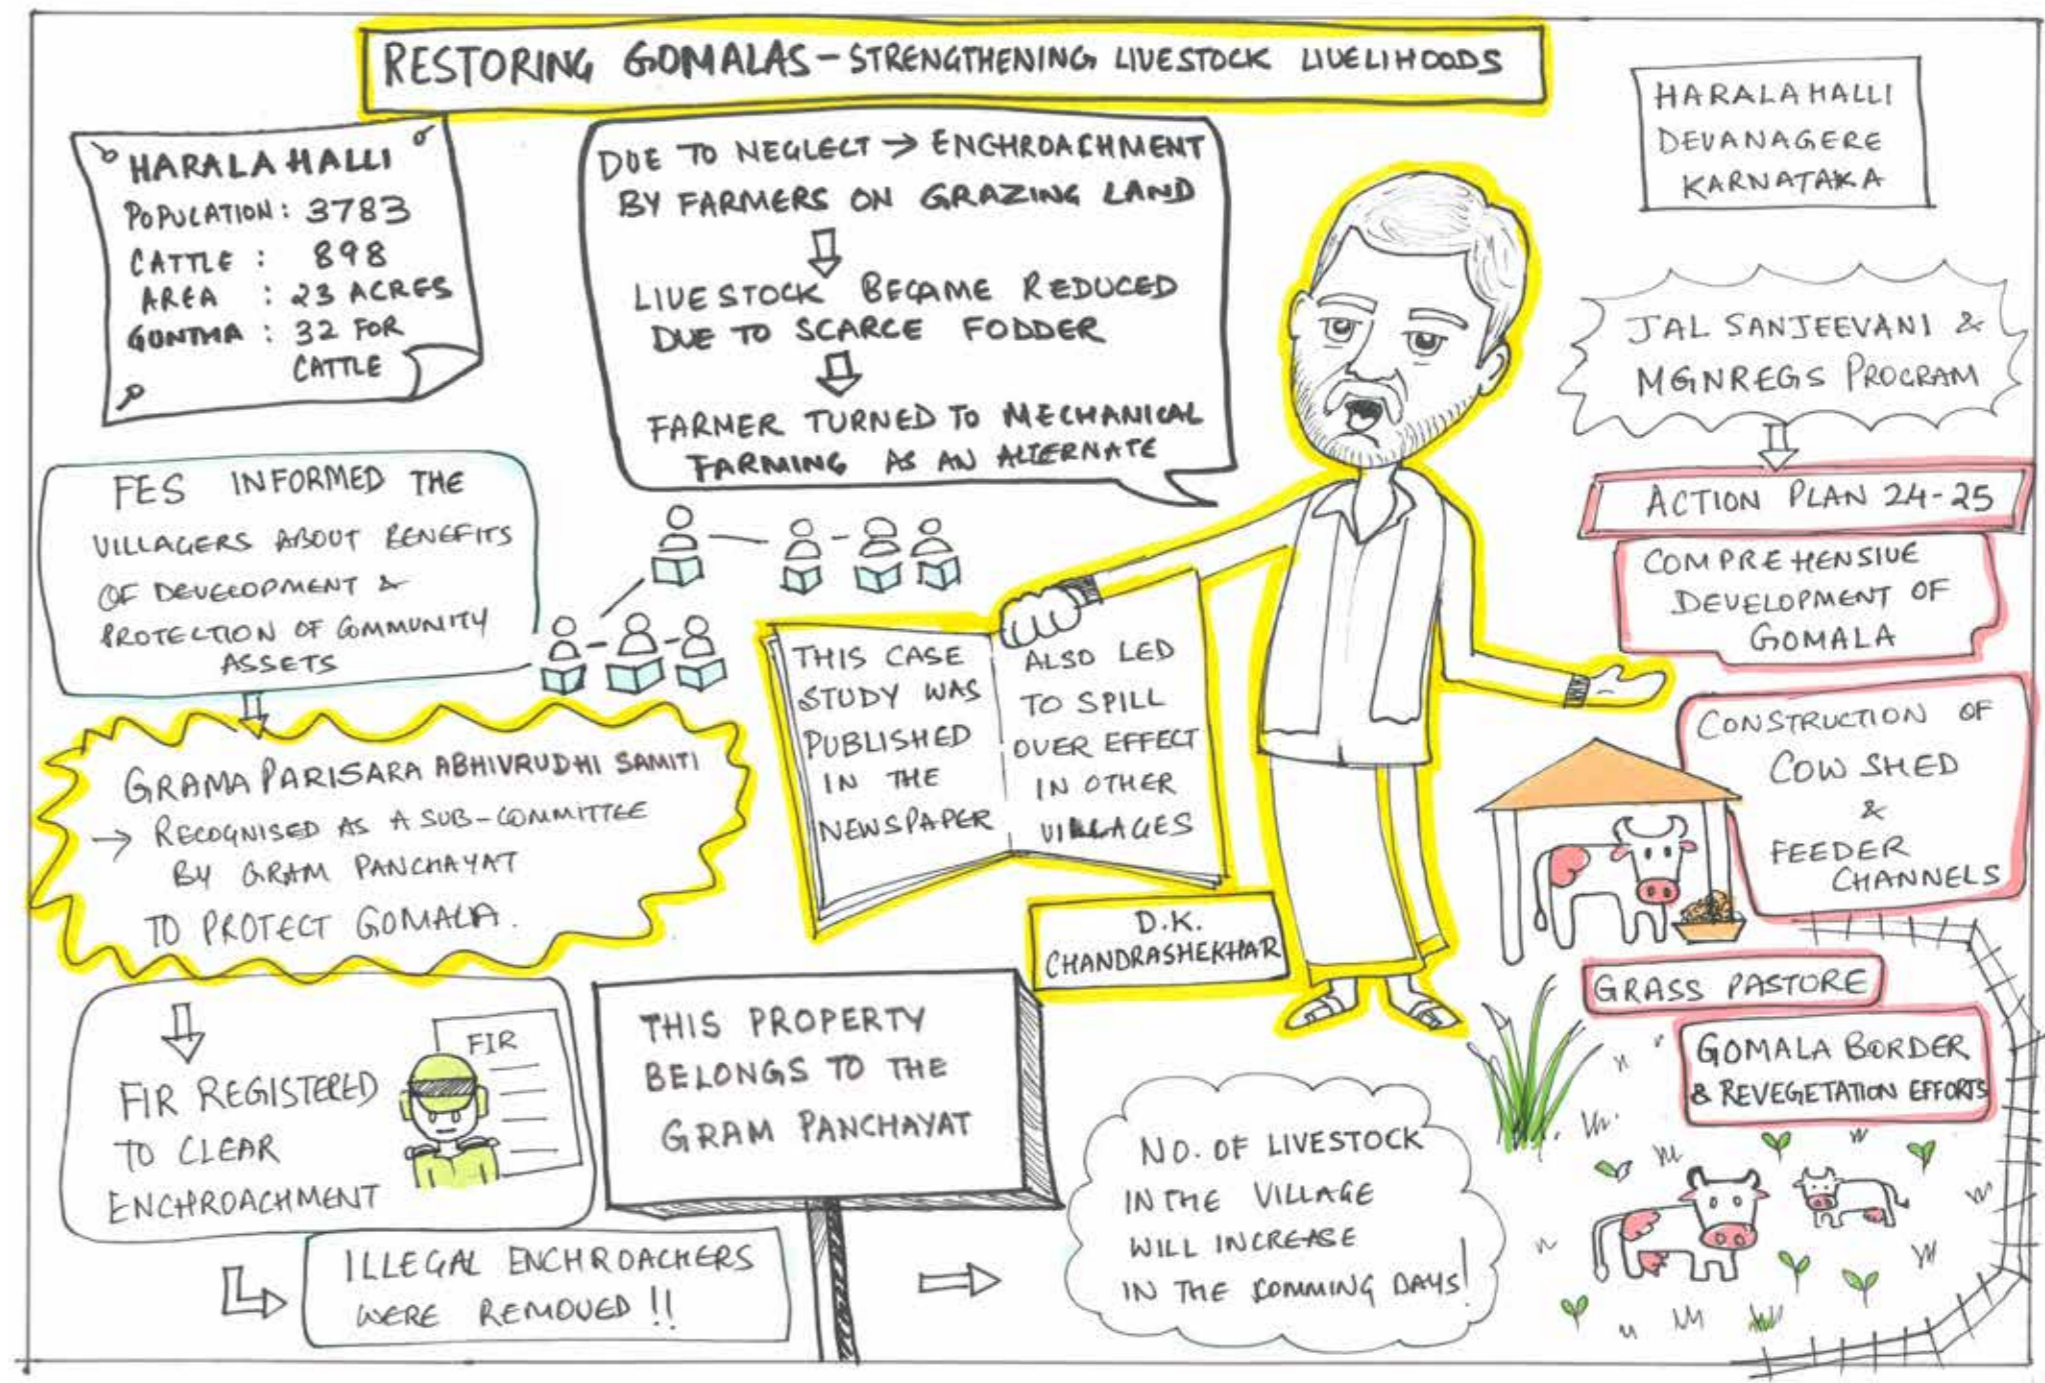 RESTORING GOMALAS - STRENGTHENING LIVESTOCK LIVELIHOODS
HARALAHALLI
POPULATION: 3783
CATTLE : 898
AREA : 23 ACRES
GUNTHA : 32 FOR
CATTLE
DUE TO NEGLECT → ENCHROACHMENT
BY FARMERS ON GRAZING LAND
LIVESTOCK BECAME REDUCED
DUE TO SCARCE FODDER
FARMER TURNED TO MECHANICAL
FARMING AS AN ALTERNATE
HARALAHALLI
DEVANAGERE
KARNATAKA
JAL SANJEEVANI &
MGNREGS PROGRAM
ACTION PLAN 24-25
COMPREHENSIVE
DEVELOPMENT OF
GOMALA
CONSTRUCTION OF
COW SHED
&
FEEDER
CHANNELS
GRASS PASTORE
GOMALA BORDER
& REVEGETATION EFFORTS
FES INFORMED THE
VILLAGERS ABOUT BENEFITS
OF DEVELOPMENT &
PROTECTION OF COMMUNITY
ASSETS
GRAMA PARISARA ABHIVRUDHI SAMITI
→ RECOGNISED AS A SUB-COMMITTEE
BY GRAM PANCHAYAT
TO PROTECT GOMALA.
THIS CASE
STUDY WAS
PUBLISHED
IN THE
NEWSPAPER
ALSO LED
TO SPILL
OVER EFFECT
IN OTHER
VILLAGES
D.K.
CHANDRASHEKHAR
FIR REGISTERED
TO CLEAR
ENCHROACHMENT
FIR
ILLEGAL ENCHROACHERS
WERE REMOVED !!
THIS PROPERTY
BELONGS TO THE
GRAM PANCHAYAT
NO. OF LIVESTOCK
IN THE VILLAGE
WILL INCREASE
IN THE COMMING DAYS!